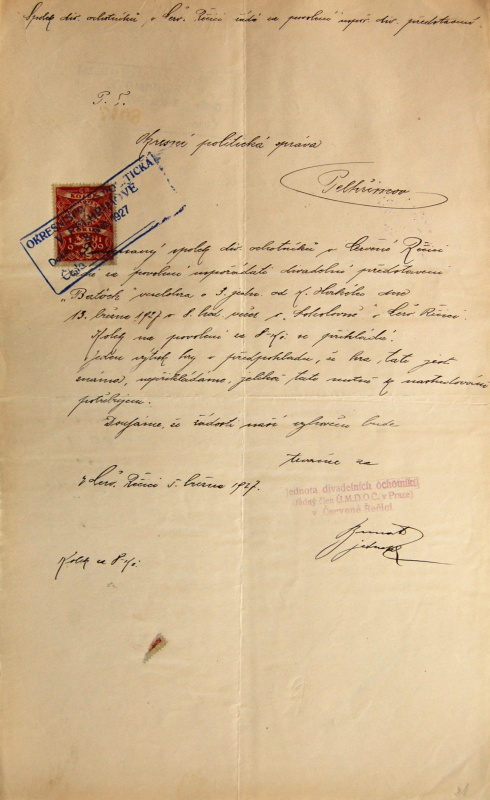 Spolek div. ochotníků v Červ. Řečici žádá za povolení uspoř. div. představení
P. T.
Okresní politická správa
Pelhřimov.
OKRESNÍ
1927
spolek div. ochotníků v Červené Řečici
za povolení uspořádati divadelní představení
"Batoch" veselohra o 3 jedn. od
13. března 1927 o 8 hod. večer v "Sokolovně" v Červ. Řečici.
Kolek na povolení za 8 Kč se přikládá.
jeden výtisk hry v předpokladu, že hra tato jest
známa, nepřikládáme, jelikož tuto nutně k nastudování
potřebujem.
Doufáme, že žádosti naší vyhověno bude
znamená se
V Červ. Řečici 5. března 1927.
Jednota divadelních ochotníků
řádný člen (Ú.M.D.O.Č. v Praze)
v Červené Řečici
jednatel
Kolek za 8 Kč